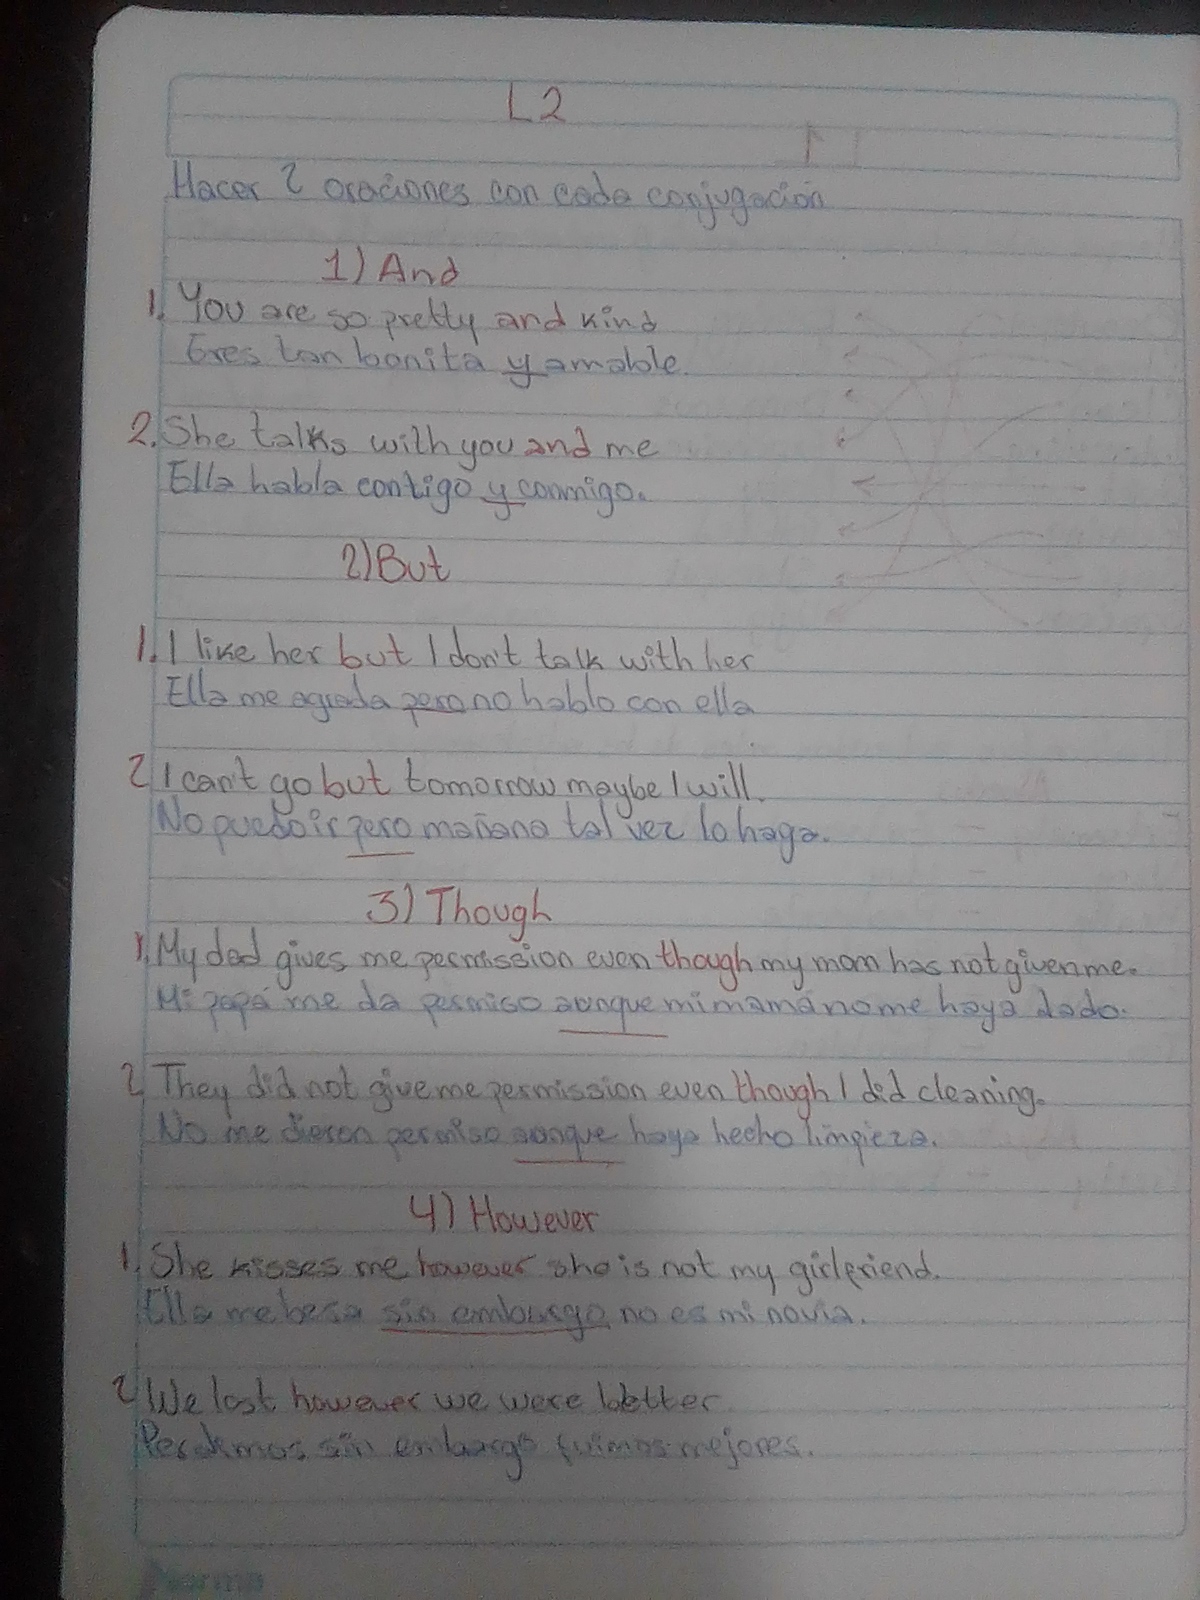 L2
Hacer 2 oraciones con cada conjugación
1) And
1. You are so pretty and kind
Eres tan bonita y amable.
2. She talks with you and me
Ella habla contigo y conmigo.
2) But
1. I like her but I don't talk with her
Ella me agrada pero no hablo con ella
2 I can't go but tomorrow maybe I will.
No puedo ir pero mañana tal vez lo haga.
3) Though
1. My dad gives me permission even though my mom has not given me.
Mi papá me da permiso aunque mi mamá no me haya dado.
2 They did not give me permission even though I did cleaning.
No me dieron permiso aunque haya hecho limpieza.
4) However
1. She kisses me however she is not my girlfriend.
Ella me besa sin embargo no es mi novia.
2 We lost however we were better.
Perdimos sin embargo fuimos mejores.
Norma